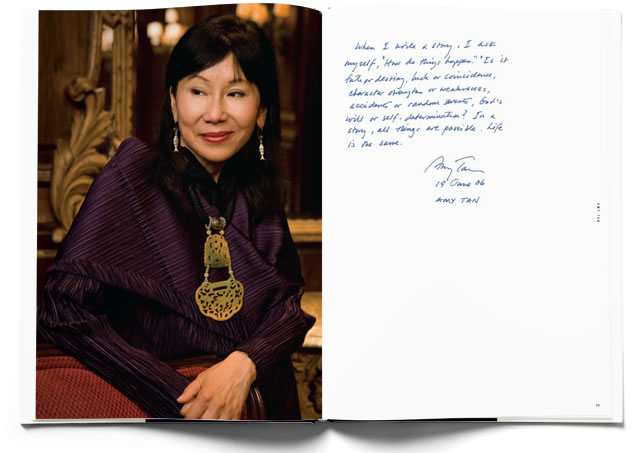 When I write a story, I ask
myself, "How do things happen." Is it
fate or destiny, luck or coincidence,
character strengths or weaknesses,
accidents or random events, God's
will or self-determination? In a
story, all things are possible. Life
is the same.
Amy Tan
19 June 06
AMY TAN
AMY TAN